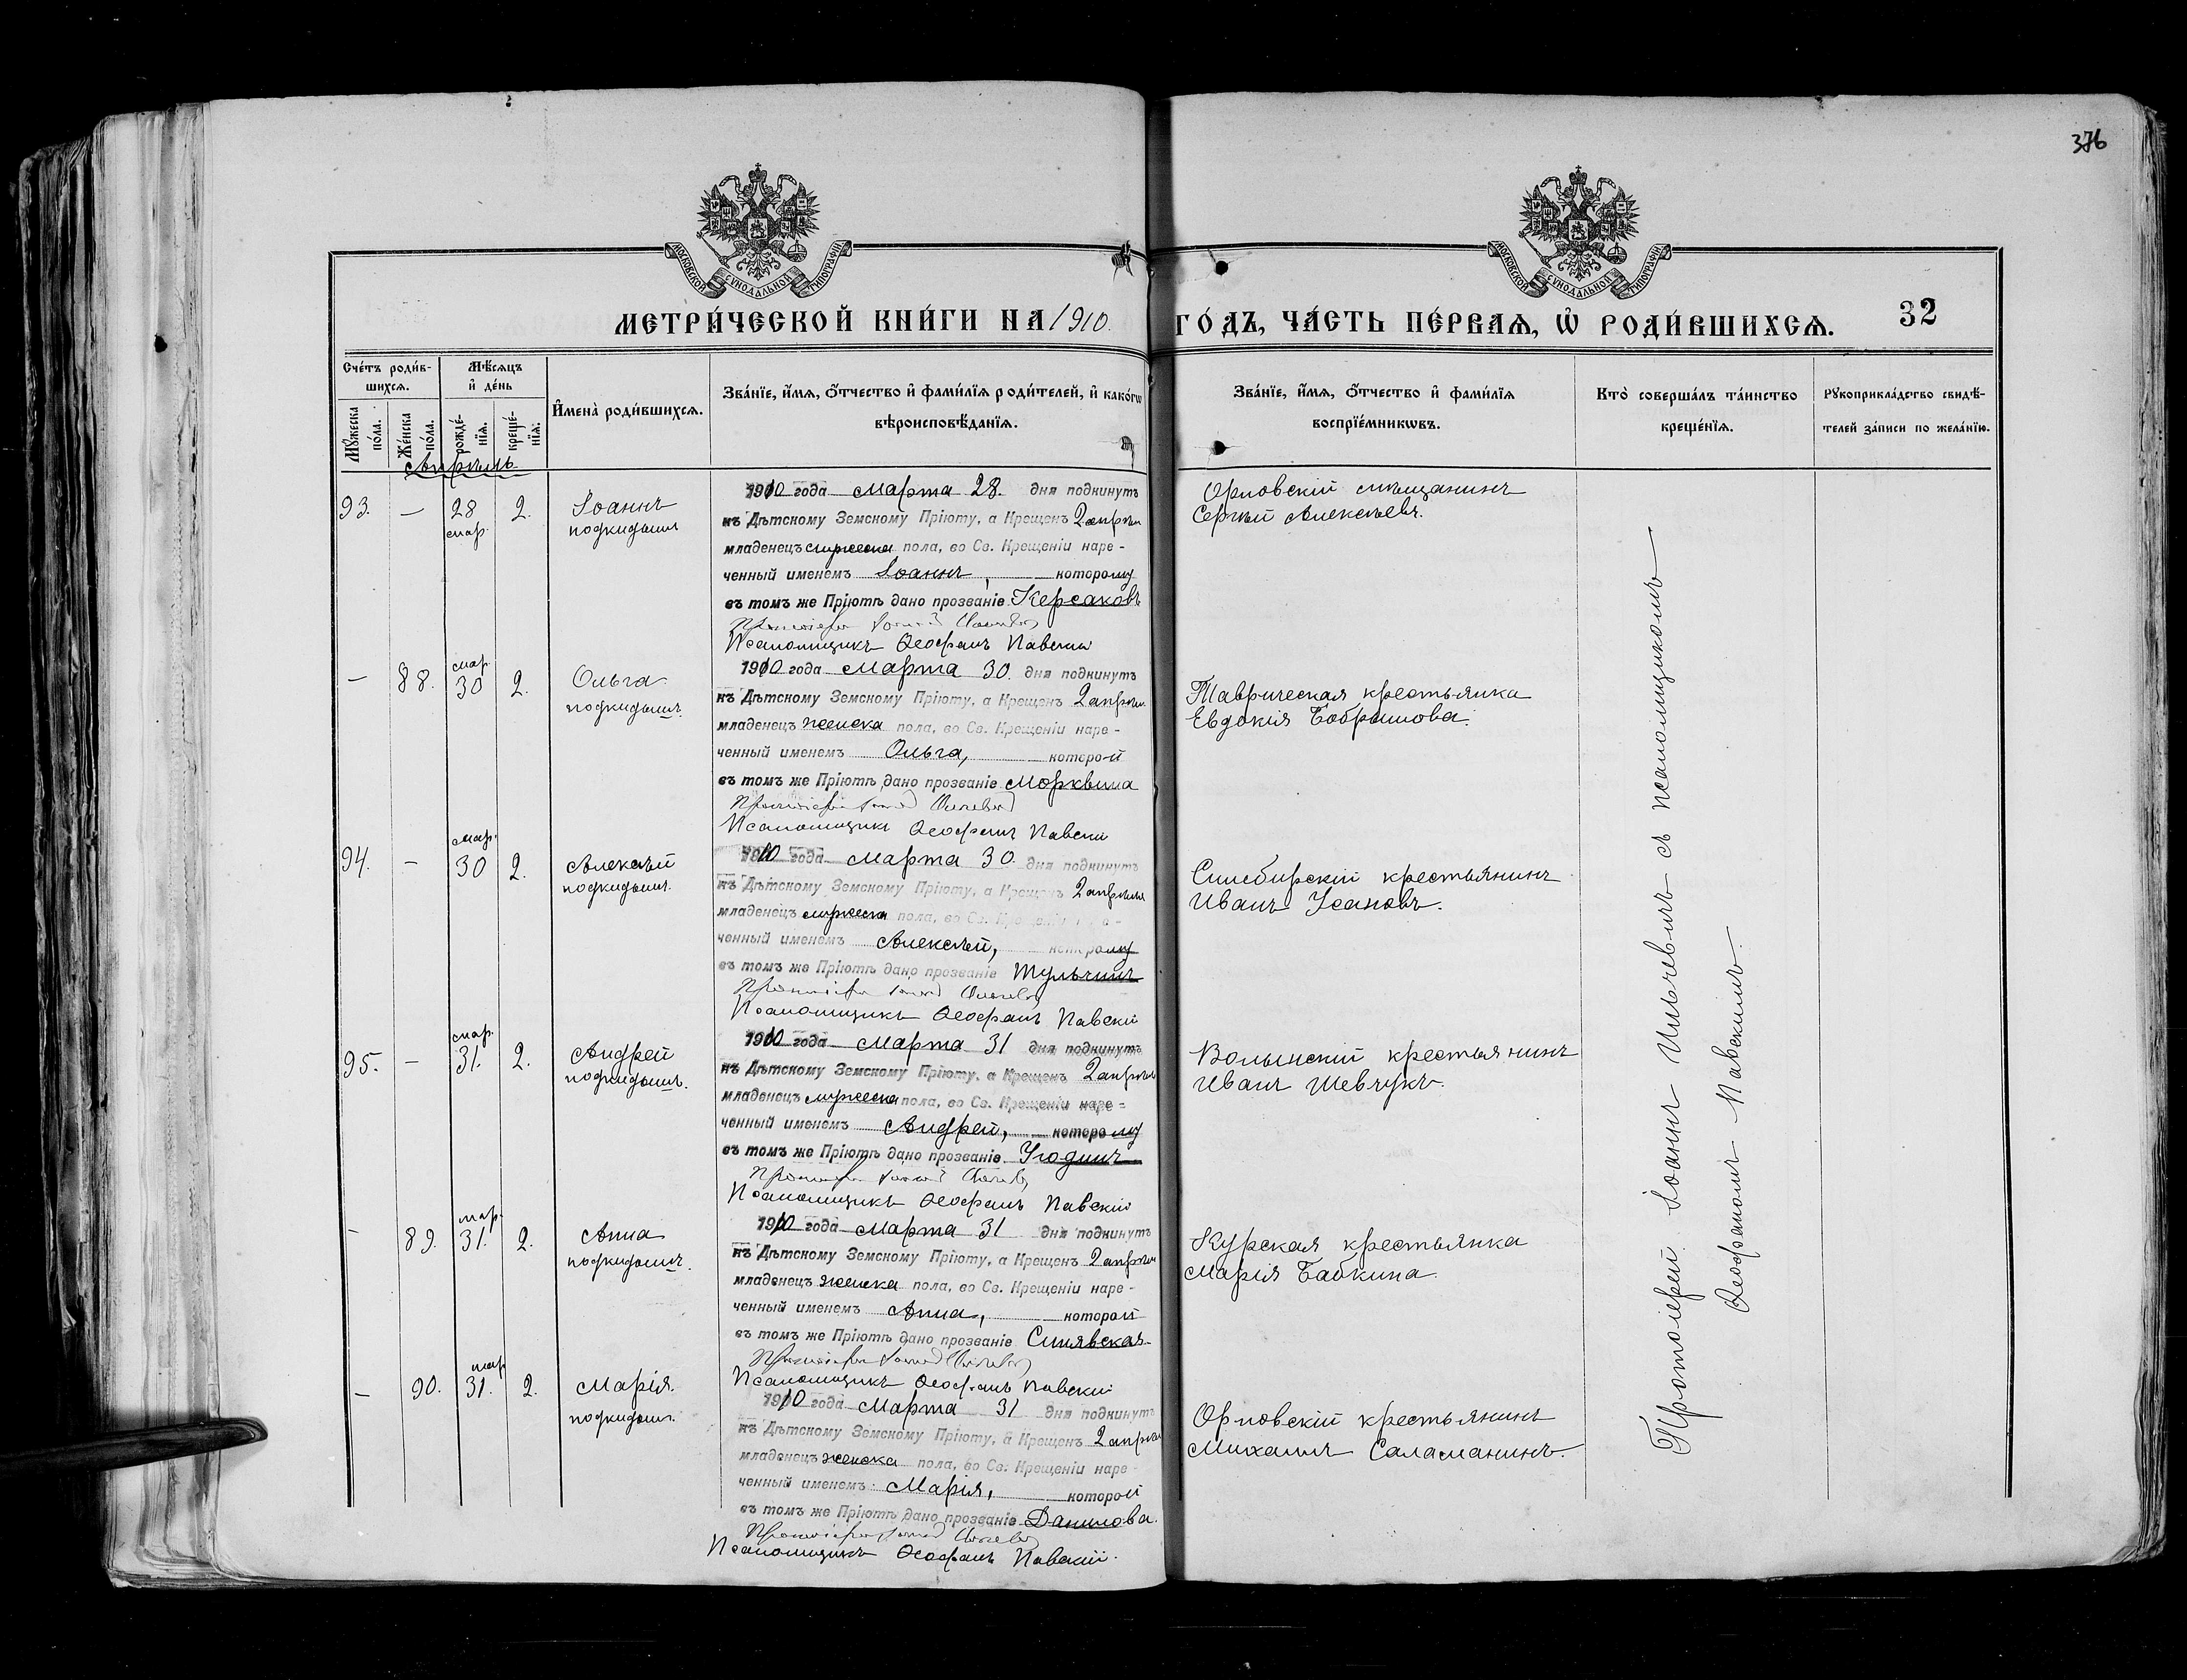 376
МОСКОВСКОЙ СѴНОДАЛЬНОЙ ТИПОГРАФІИ
МОСКОВСКОЙ СѴНОДАЛЬНОЙ ТИПОГРАФІИ
МЕТРИ́ЧЕСКОЙ КНИ́ГИ НА 1910. ГО́ДЪ, ЧА́СТЬ ПЕ́РВАѦ, Ѡ҆ РОДИ́ВШИХСѦ. 32
Сче́тъ роди́в-
шихсѧ.
Мꙋ́жеска
по́ла.
Же́нска
по́ла.
Мѣ́сѧцъ
и҆ де́нь
рожде́-
нїѧ.
креще́-
нїѧ.
И҆мена̀ роди́вшихсѧ.
Зва́нїе, и҆́мѧ, ѻ҆́тчество и҆ фами́лїѧ роди́телей, и҆ како́гѡ
вѣроисповѣ́данїѧ.
Зва́нїе, и҆́мѧ, ѻ҆́тчество и҆ фами́лїѧ
воспрїе́мникѡвъ.
Кто̀ соверша́лъ та́инство
креще́нїѧ.
Рꙋкоприкла́дство свидѣ́-
телей за́писи по жела́нїю.
Апрѣль
93. — 28 мар. 2. Іоаннъ
подкидышъ
1910 года Марта 28. дня подкинутъ
къ Дѣтскому Земскому Пріюту, а Крещенъ 2 апрѣля
младенецъ мужеска пола, во Св. Крещеніи наре-
ченный именемъ Іоаннъ, которому
въ томъ же Пріютѣ дано прозваніе Керсаковъ
Псаломщикъ Ѳеофанъ Павскій
Орловскій мѣщанинъ
Сергѣй Алексѣевъ.
— 88. мар. 30 2. Ольга
подкидышъ.
1910 года Марта 30. дня подкинутъ
къ Дѣтскому Земскому Пріюту, а Крещенъ 2 апрѣля
младенецъ женска пола, во Св. Крещеніи наре-
ченный именемъ Ольга, которой
въ томъ же Пріютѣ дано прозваніе Морквина
Псаломщикъ Ѳеофанъ Павскій
Таврическая крестьянка
Евдокія
94. — мар. 30 2. Алексѣй
подкидышъ.
1910 года Марта 30. дня подкинутъ
къ Дѣтскому Земскому Пріюту, а Крещенъ 2 апрѣля
младенецъ мужеска пола, во Св. Крещеніи наре-
ченный именемъ Алексѣй, которому
въ томъ же Пріютѣ дано прозваніе Тульчинъ
Псаломщикъ Ѳеофанъ Павскій
Симбирскій крестьянинъ
Иванъ Усановъ.
95. — мар. 31. 2. Андрей
подкидышъ.
1910 года Марта 31 дня подкинутъ
къ Дѣтскому Земскому Пріюту, а Крещенъ 2 апрѣля
младенецъ мужеска пола, во Св. Крещеніи наре-
ченный именемъ Андрей, которому
въ томъ же Пріютѣ дано прозваніе Угодинъ
Псаломщикъ Ѳеофанъ Павскій
Волынскій крестьянинъ
Иванъ Шевчукъ.
— 89. мар. 31. 2. Анна
подкидышъ.
1910 года Марта 31 дня подкинутъ
къ Дѣтскому Земскому Пріюту, а Крещенъ 2 апрѣля
младенецъ женска пола, во Св. Крещеніи наре-
ченный именемъ Анна, которой
въ томъ же Пріютѣ дано прозваніе Синявская
Псаломщикъ Ѳеофанъ Павскій
Курская крестьянка
Марія Бабкина.
— 90. мар 31. 2. Марія.
подкидышъ.
1910 года Марта 31 дня подкинутъ
къ Дѣтскому Земскому Пріюту, а Крещенъ 2 апрѣля
младенецъ женска пола, во Св. Крещеніи наре-
ченный именемъ Марія, которой
въ томъ же Пріютѣ дано прозваніе Данилова.
Псаломщикъ Ѳеофанъ Павскій.
Орловскій крестьянинъ
Михаилъ Саламанинъ.
Протоіерей Іоаннъ Ильчевичъ съ псаломщикомъ
Ѳеофаномъ Павскимъ.